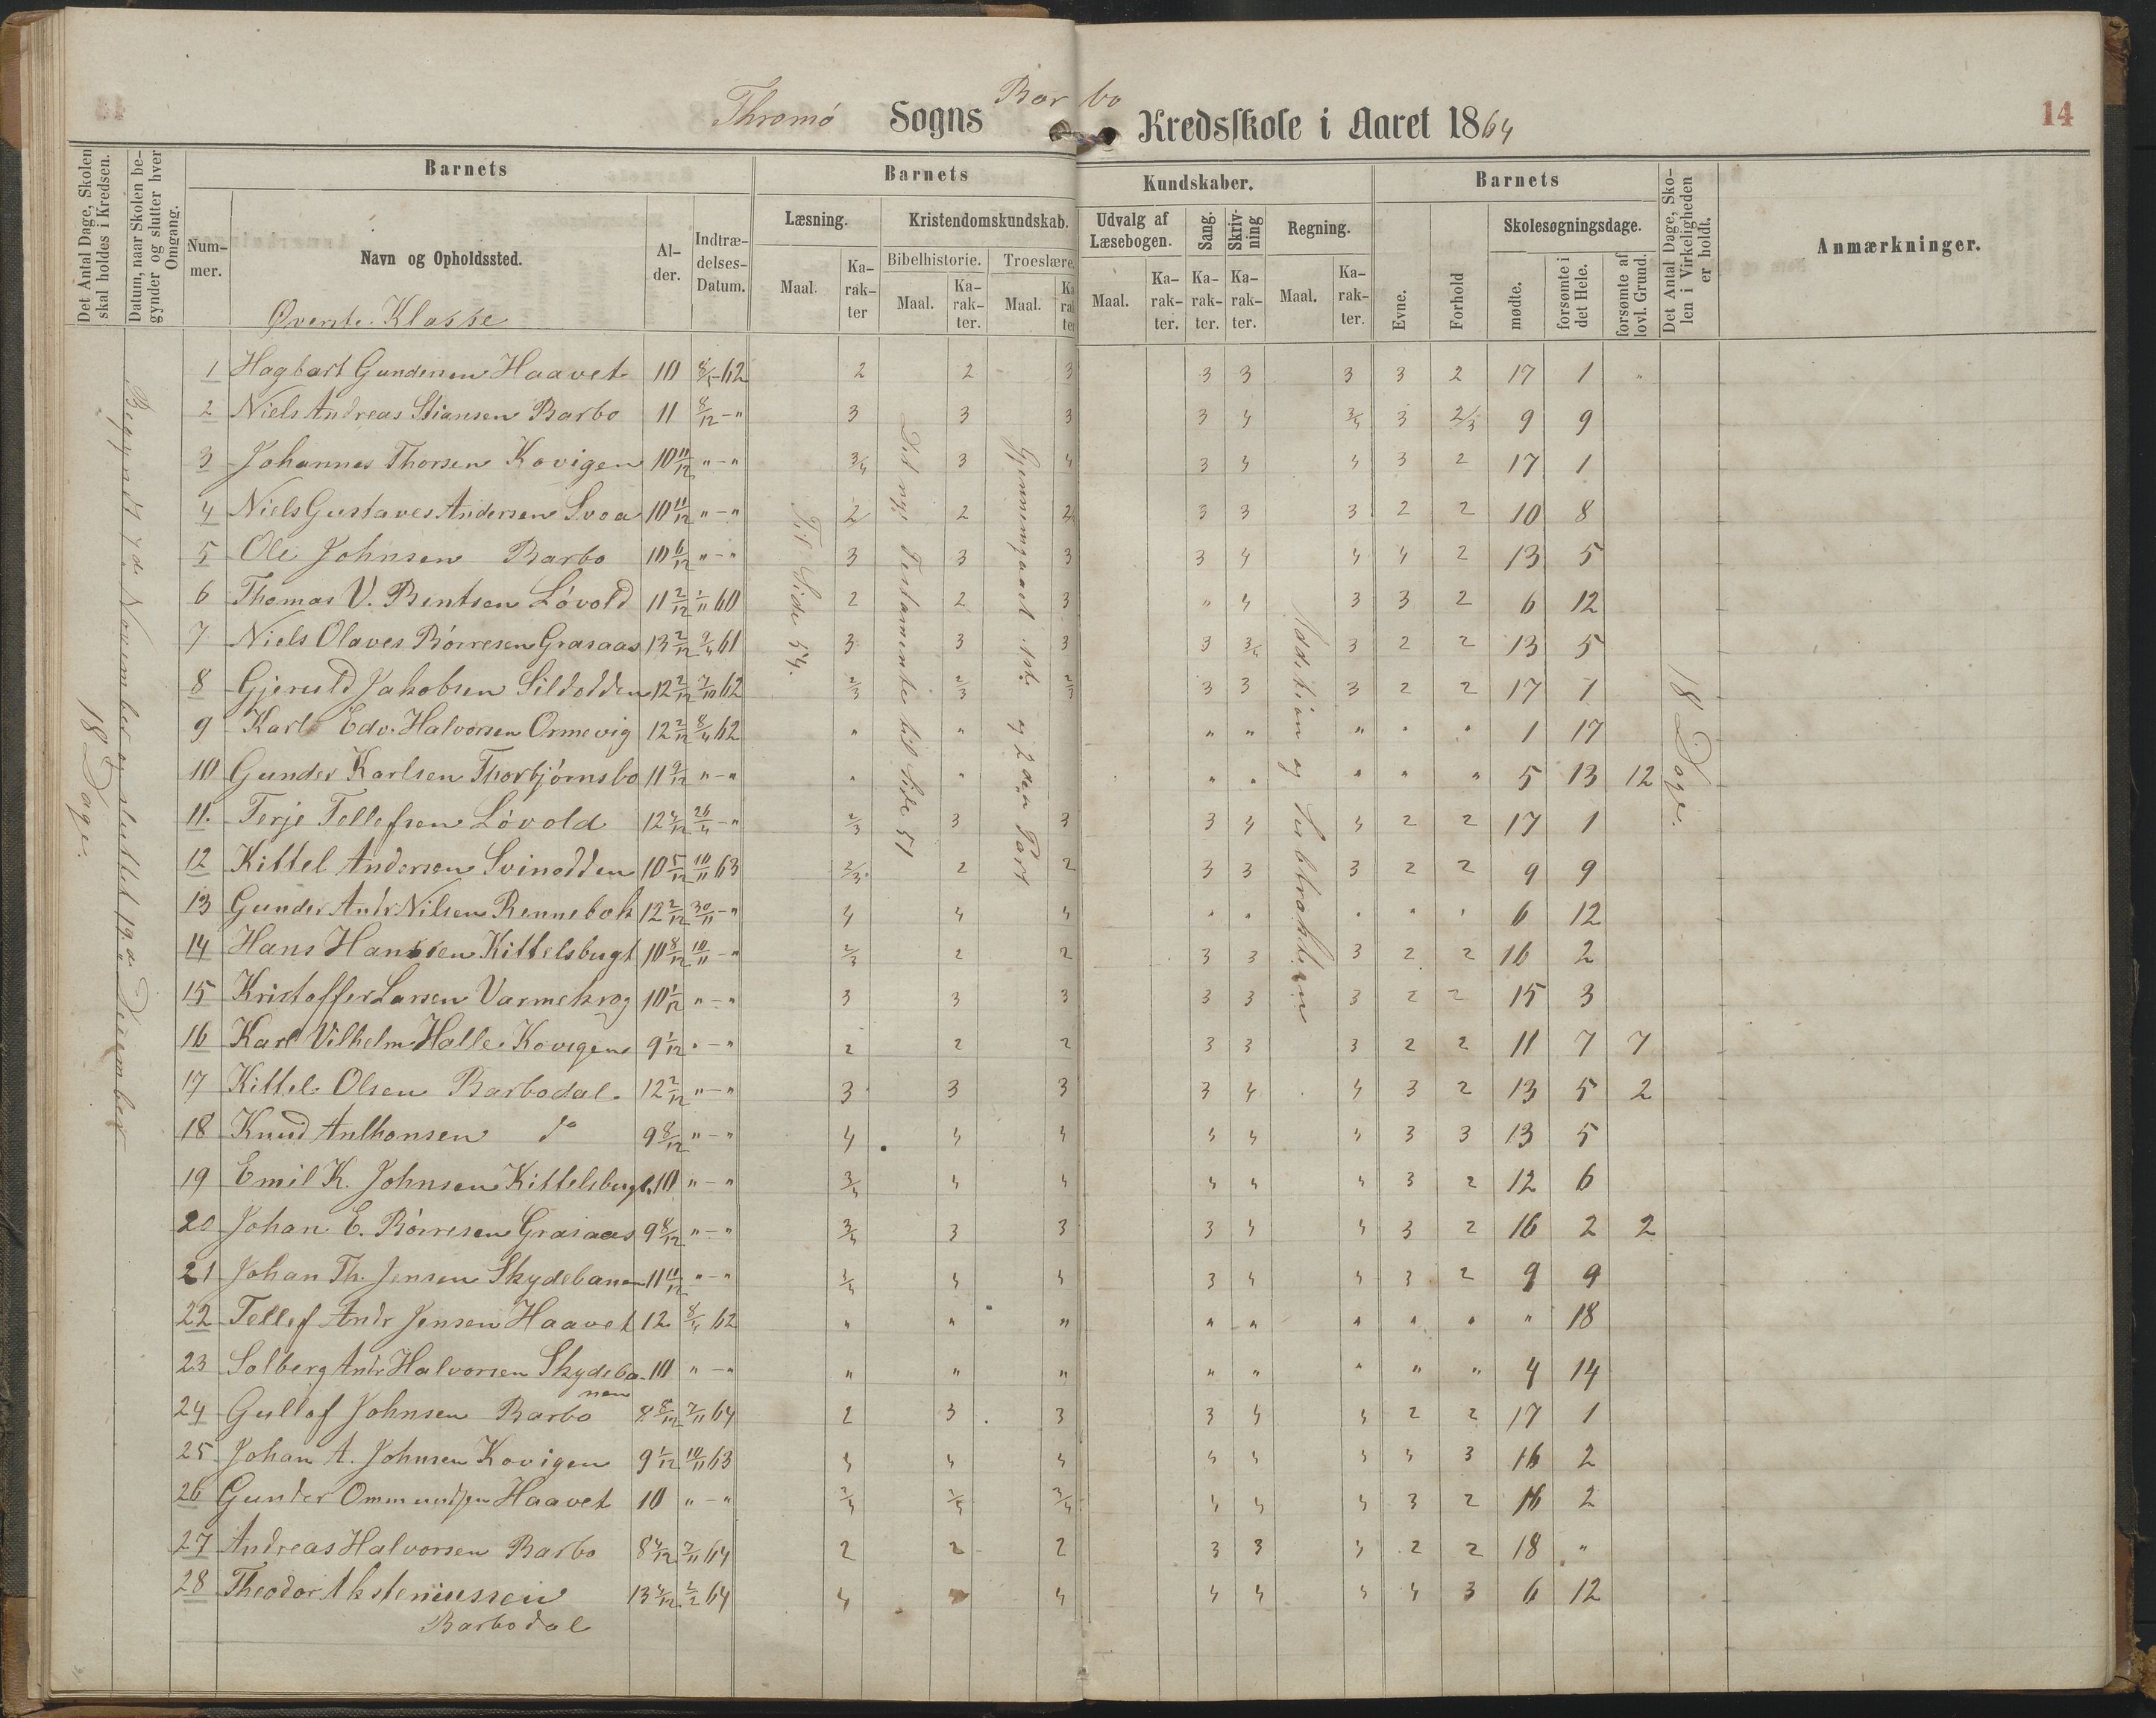 Thromø Sogns Barbo Kredsskole i Aaret 1864
14
Det Antal Dage, Skolen skal holdes i Kredsen.
Datum, naar Skolen begynder og slutter hver Omgang.
Barnets
Nummer.
Navn og Opholdssted.
Alder.
Indtrædelses-Datum.
Barnets Kundskaber.
Læsning.
Maal.
Karakter
Kristendomskundskab.
Bibelhistorie.
Maal.
Karakter.
Troeslære.
Maal.
Karakter
Udvalg af Læsebogen.
Maal.
Karakter.
Sang.
Karakter.
Skrivning
Karakter.
Regning.
Maal.
Karakter.
Barnets
Evne.
Forhold
Skolesøgningsdage.
mødte.
forsømte i det Hele.
forsømte af lovl. Grund.
Det Antal Dage, Skolen i Virkeligheden er holdt.
Anmærkninger.
Øverste Klasse
18 Dage.
Begyndt 7de November og sluttet 19de Desember
Til Side 54.
Det nye Testamente til Side 51
Gjennemgaaet 1ste og 2den Part
Addition og Subtraktion
18 Dage.
1 Hagbart Gundersen Haavet 10 8/4-62 2 2 3 3 3 3 3 2 17 1 "
2 Niels Andreas Stiansen Barbo 11 8/12-" 3 3 3 3 4 3/4 3 2/3 9 9
3 Johannes Thorsen Kovigen 10 11/12 "-" 3/4 3 4 3 4 4 3 2 17 1
4 Niels Gustaves Andersen Svoa 10 11/12 "-" 2 2 2 3 3 3 2 2 10 8
5 Ole Johnsen Barbo 10 6/12 "-" 3 3 3 3 4 4 4 2 13 5
6 Thomas V. Bentsen Løvold 11 2/12 1/11 60 2 2 3 " 4 3 3 2 6 12
7 Niels Olaves Børresen Grasaas 13 2/12 2/4 61 3 3 3 3 3/4 3 2 2 13 5
8 Gjeruld Jakobsen Sildodden 12 2/12 7/10 62 2/3 2/3 2/3 3 3 3 2 2 17 1
9 Karl Edv. Halvorsen Ormevig 12 2/12 8/4 62 " " " " " " " 1 17
10 Gunder Karlsen Thorbjørnsbo 11 9/12 "-" " " " " " " " 5 13 12
11. Terje Tellefsen Løvold 12 4/12 26/4-" 2/3 3 3 3 4 4 2 2 17 1
12 Kittel Andersen Svinodden 10 5/12 10/11 63 2/3 2 2 3 3 3 2 2 9 9
13 Gunder Andr Nilsen Rennebok 12 2/12 30/11-" 4 4 4 " " " " " 6 12
14 Hans Hanssen Kittelsbugt 10 8/12 10/11-" 2/3 2 2 3 3 3 2 2 16 2
15 Kristoffer Larsen Varmekrog 10 1/12 "-" 3 3 3 3 3 3 2 2 15 3
16 Karl Vilhelm Halle Kovigen 9 1/12 "-" 2 2 2 3 3 3 2 2 11 7 7
17 Kittel Olsen Barbodal 12 2/12 "-" 3 3 3 3 4 4 3 2 13 5 2
18 Knud Anthonsen do 9 8/12 "-" 4 4 4 4 4 4 3 3 13 5
19 Emil K. Johnsen Kittelsbugt 10 "-" 3/4 4 4 4 4 4 3 2 12 6
20 Johan E. Børresen Grasaas 9 8/12 "-" 3/4 3 3 3 4 4 3 2 16 2 2
21 Johan Th. Jensen Skydebanen 11 11/12 "-" 3/4 4 4 3 4 4 3 2 9 9
22 Tellef Andr Jensen Haavet 12 8/4 62 " " " " " " " " " 18
23 Solberg Andr Halvorsen Skydebanen 10 "-" " " " " " " " " 4 14
24 Gullof Johnsen Barbo 8/12 7/11 64 2 3 3 3 4 4 2 2 17 1
25 Johan A. Johnsen Kovigen 9 1/12 10/11 63 4 4 4 4 4 4 4 3 16 2
26 Gunder Ommundsen Haavet 10 "-" 3/4 3/4 3/4 4 4 4 3 2 16 2
27 Andreas Halvorsen Barbo 8 4/12 7/11 64 2 2 2 3 3 4 2 2 18 "
28 Theodor 13 4/12 2/2 64 4 4 4 4 4 4 3 6 12
Barbodal